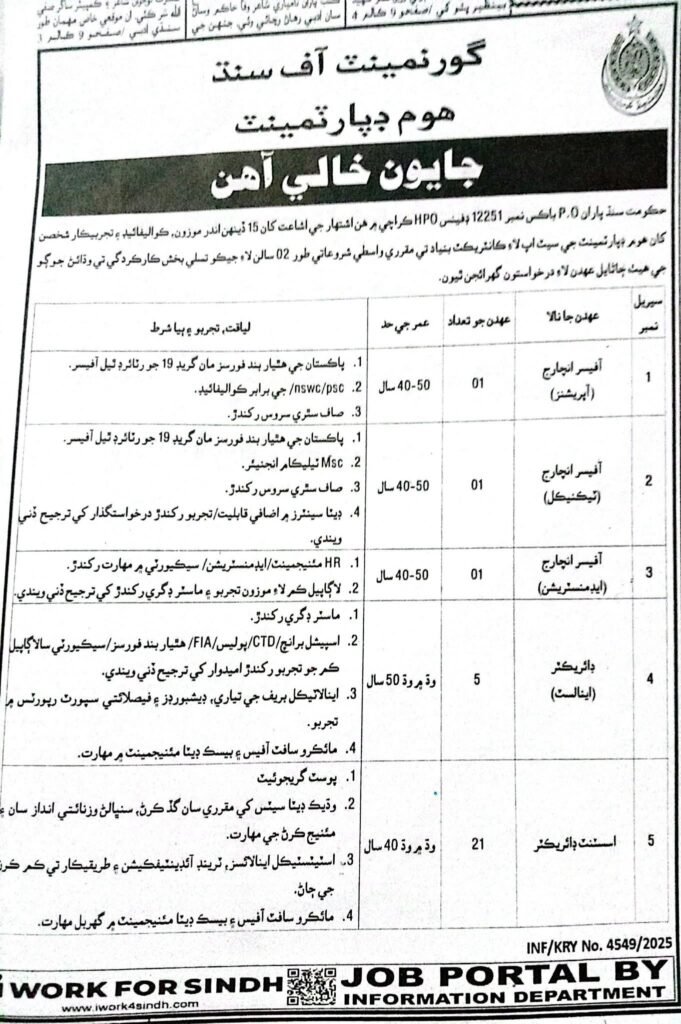 بينظير پلو کي /صفحو 9 کالم 4
سنڌي ادبي /صفحو 9 کالم 3
گورنمينٽ آف سنڌ
هوم ڊپارٽمينٽ
جايون خالي آهن
حڪومت سنڌ پاران P.O باڪس نمبر 12251 ڊفينس HPO ڪراچي ۾ هن اشتهار جي اشاعت کان 15 ڏينهن اندر موزون، ڪواليفائيڊ ۽ تجربيڪار شخصن
کان هوم ڊپارٽمينٽ جي سيٽ اپ لاءِ ڪانٽريڪٽ بنياد تي مقرري واسطي شروعاتي طور 02 سالن لاءِ جيڪو تسلي بخش ڪارڪردگي تي وڌائڻ جوڳو
جي هيٺ ڄاڻايل عهدن لاءِ درخواستون گهرائجن ٿيون.
سيريل نمبر
عهدن جا نالا
عهدن جو تعداد
عمر جي حد
لياقت، تجربو ۽ ٻيا شرط
1
آفيسر انچارج
(آپريشنز)
01
40-50 سال
1. پاڪستان جي هٿيار بند فورسز مان گريڊ 19 جو رٽائرڊ ٿيل آفيسر.
2. nswc/psc/ جي برابر ڪواليفائيڊ.
3. صاف سٿري سروس رکندڙ.
2
آفيسر انچارج
(ٽيڪنيڪل)
01
40-50 سال
1. پاڪستان جي هٿيار بند فورسز مان گريڊ 19 جو رٽائرڊ ٿيل آفيسر.
2. Msc ٽيليڪام انجنيئر.
3. صاف سٿري سروس رکندڙ.
4. ڊيٽا سينٽرز ۾ اضافي قابليت/تجربو رکندڙ درخواستگذار کي ترجيح ڏني
ويندي.
3
آفيسر انچارج
(ايڊمنسٽريشن)
01
40-50 سال
1. HR مئنيجمينٽ/ايڊمنسٽريشن/ سيڪيورٽي ۾ مهارت رکندڙ.
2. لاڳاپيل ڪم لاءِ موزون تجربو ۽ ماسٽر ڊگري رکندڙ کي ترجيح ڏني ويندي.
4
ڊائريڪٽر
(اينالسٽ)
5
وڌ ۾ وڌ 50 سال
1. ماسٽر ڊگري رکندڙ.
2. اسپيشل برانچ/CTD/پوليس/FIA/ هٿيار بند فورسز/سيڪيورٽي سا لاڳاپيل
ڪم جو تجربو رکندڙ اميدوار کي ترجيح ڏني ويندي.
3. اينالاٽيڪل بريف جي تياري، ڊيشبورڊز ۽ فيصلائتي سپورٽ رپورٽس ۾
تجربو.
4. مائڪرو سافٽ آفيس ۽ بيسڪ ڊيٽا مئنيجمينٽ ۾ مهارت.
5
اسسٽنٽ ڊائريڪٽر
21
وڌ ۾ وڌ 40 سال
1. پوسٽ گريجوئيٽ
2. وڌيڪ ڊيٽا سيٽس کي مقرري سان گڏ ڪرڻ، سنڀالڻ وزنائتي انداز سان ۽
مئنيج ڪرڻ جي مهارت.
3. اسٽيٽسٽيڪل اينالائسز، ٽرينڊ آئڊينٽيفڪيشن ۽ طريقيڪار تي ڪم ڪرڻ
جي ڄاڻ.
4. مائڪرو سافٽ آفيس ۽ بيسڪ ڊيٽا مئنيجمينٽ ۾ گهربل مهارت.
INF/KRY No. 4549/2025
i WORK FOR SINDH
www.iwork4sindh.com
JOB PORTAL BY
INFORMATION DEPARTMENT